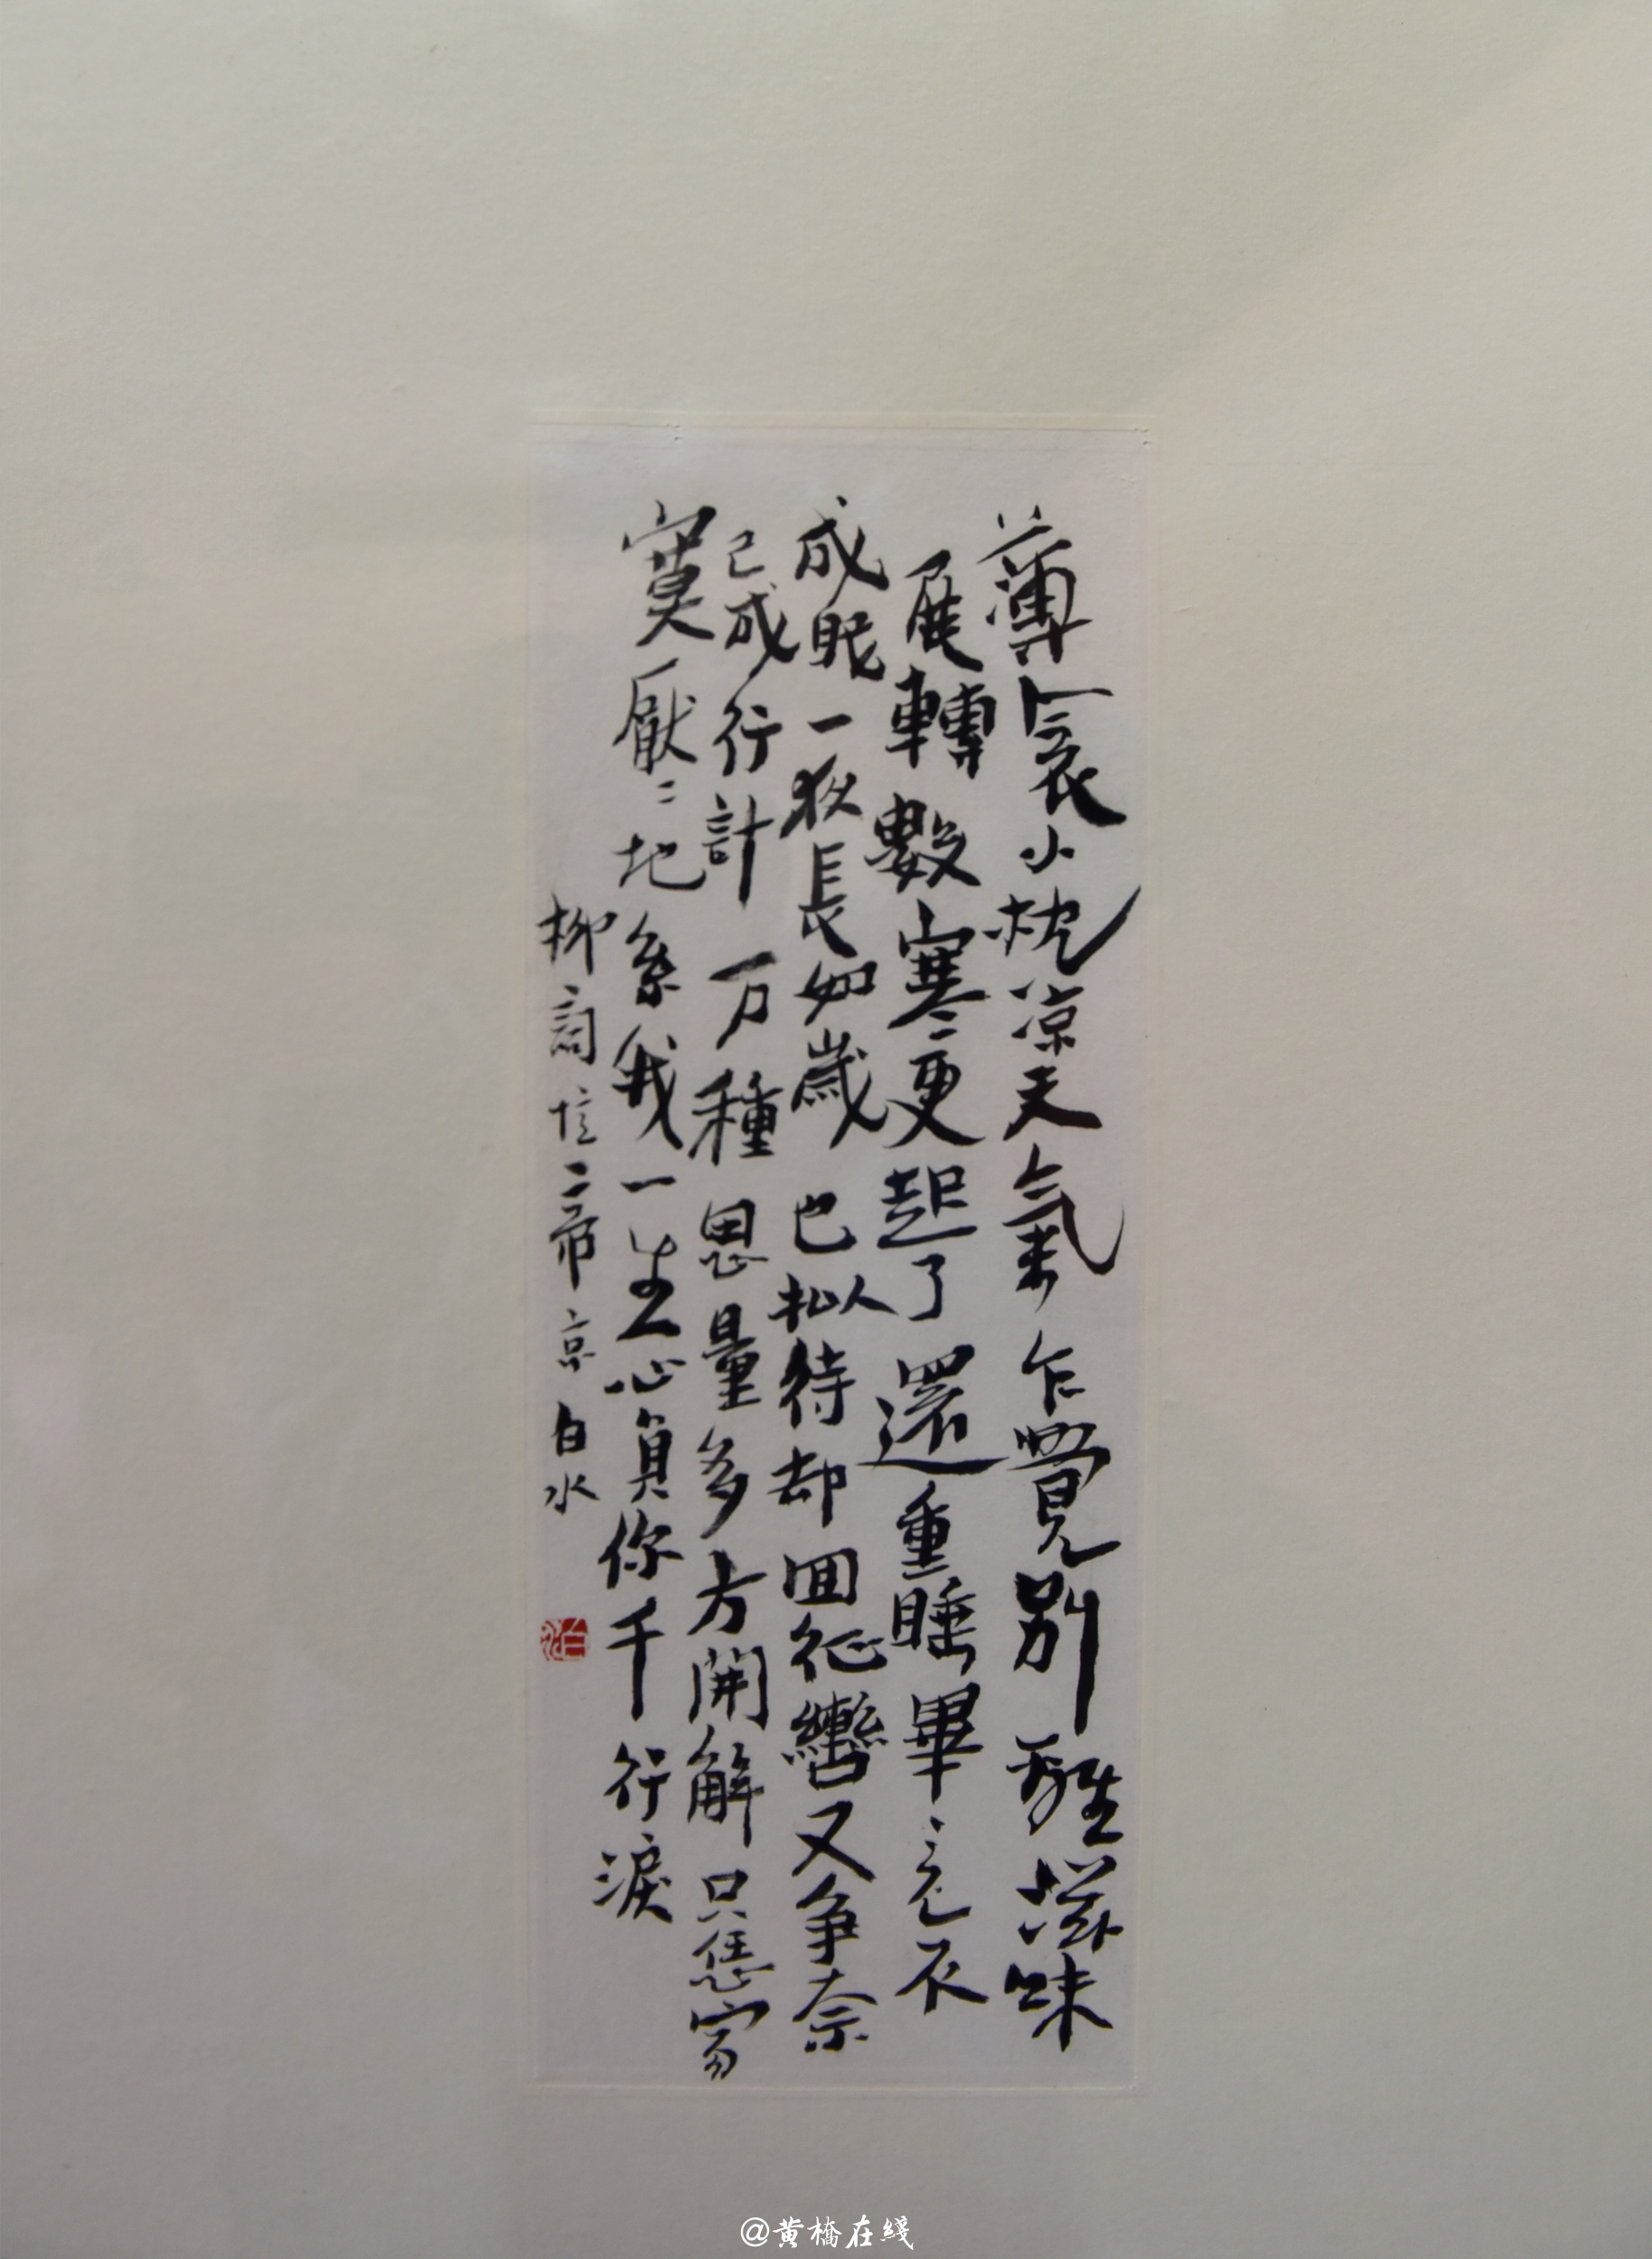 薄衾小枕凉天氣乍覺別離滋味
展轉數寒更起了還重睡畢竟不
成眠一夜長如歲也拟待却回征轡又争奈
已成行計万種思量多方開解只恁寂
寞厭厭地系我一生心負你千行淚
柳詞憶帝京白水
白水
@黄橋在綫